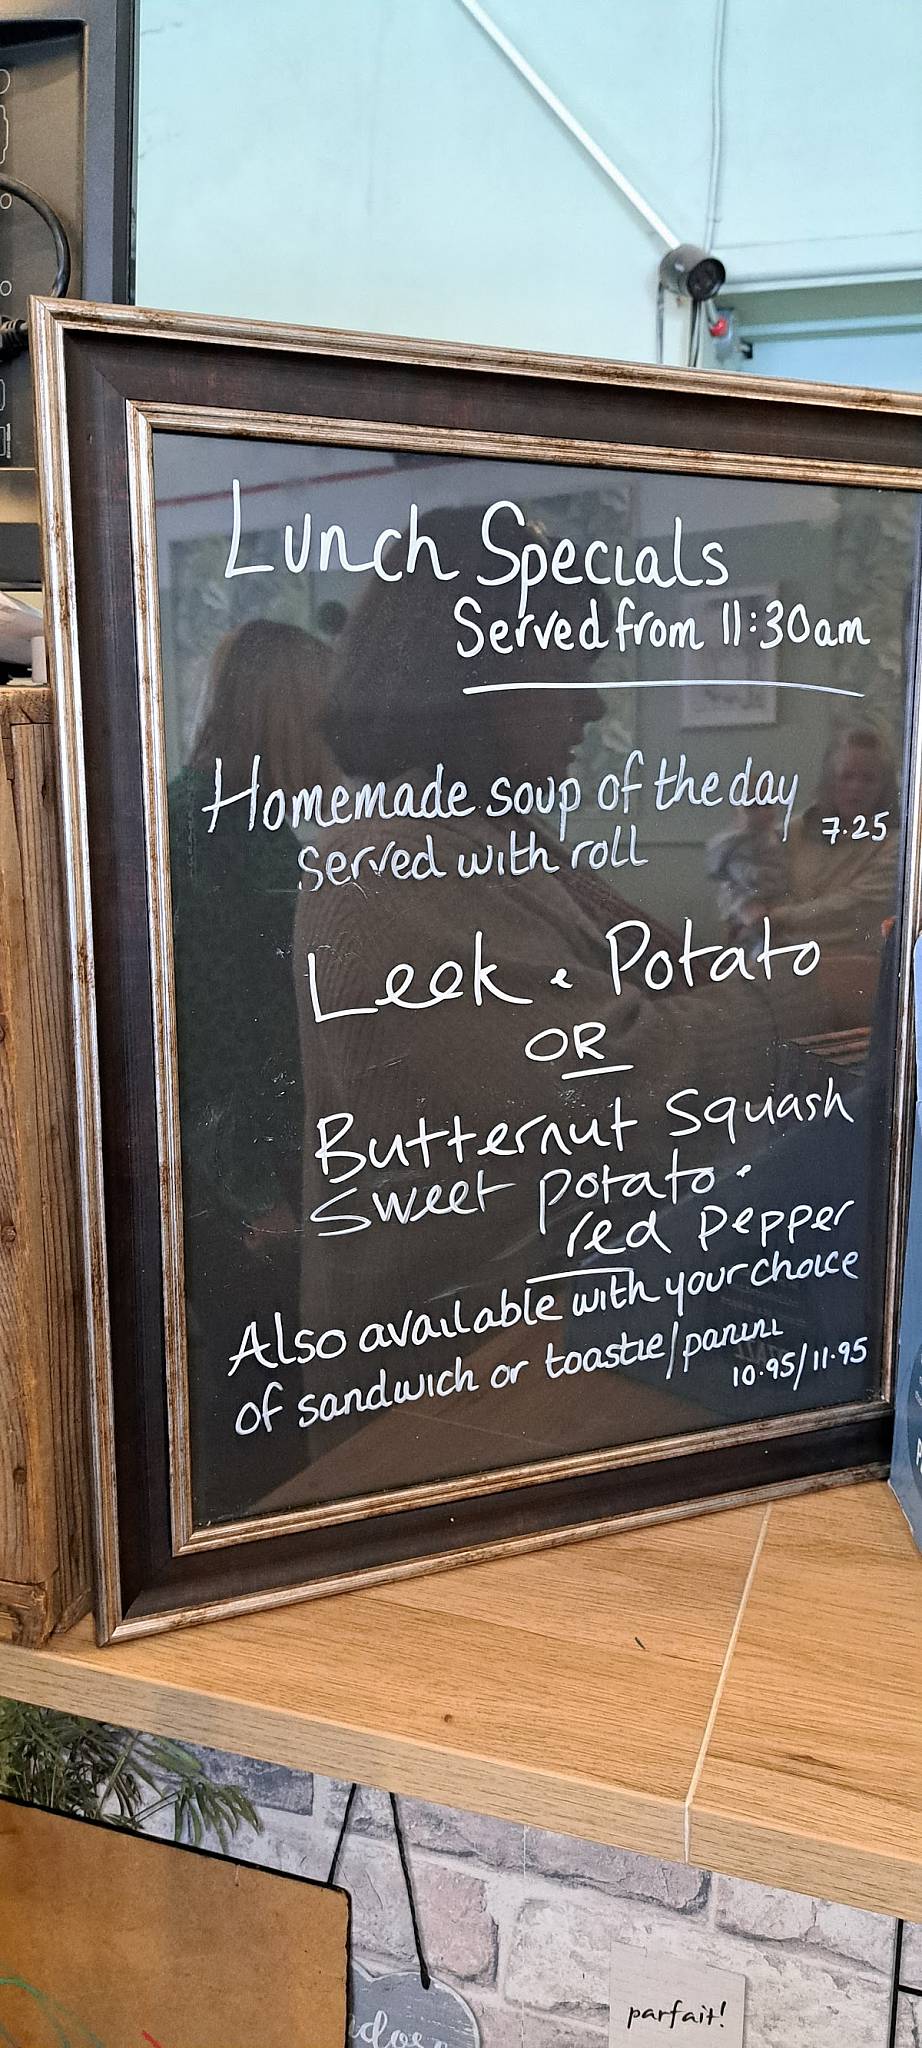 Lunch Specials
Served from 11:30am
Homemade soup of the day
7.25
Served with roll
Leek & Potato
OR
Butternut Squash
Sweet potato &
red pepper
Also available with your choice
of sandwich or toastie/panini
10.95/11.95
parfait!